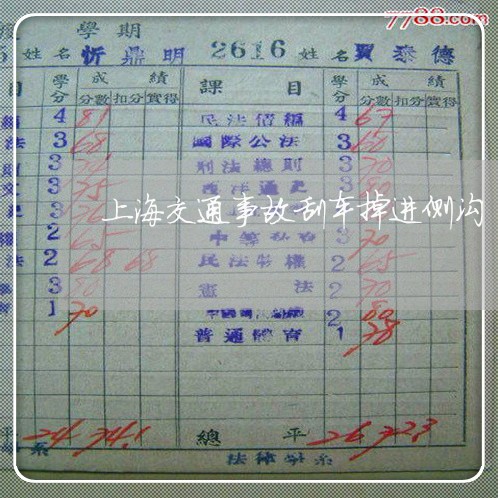 7788.com
學期
姓名 忻鼎明 2616 姓名 賈泰德
目 學分 成績 課目 學分 成績
分數 扣分 實得 分數 扣分 實得
4 81 民法債編 4 67
法 3 68 國際公法 3 60
3 刑法總則 3 70
3 75 通史 3
上海交通事故刮车掉进侧沟
2 65 3 70
法 2 68 68 民法物權 2 65
3 憲法 2 70
1 70 2 80
普通體育 1 78
平 24 74.1 總平 26 72.3
系 法律學系